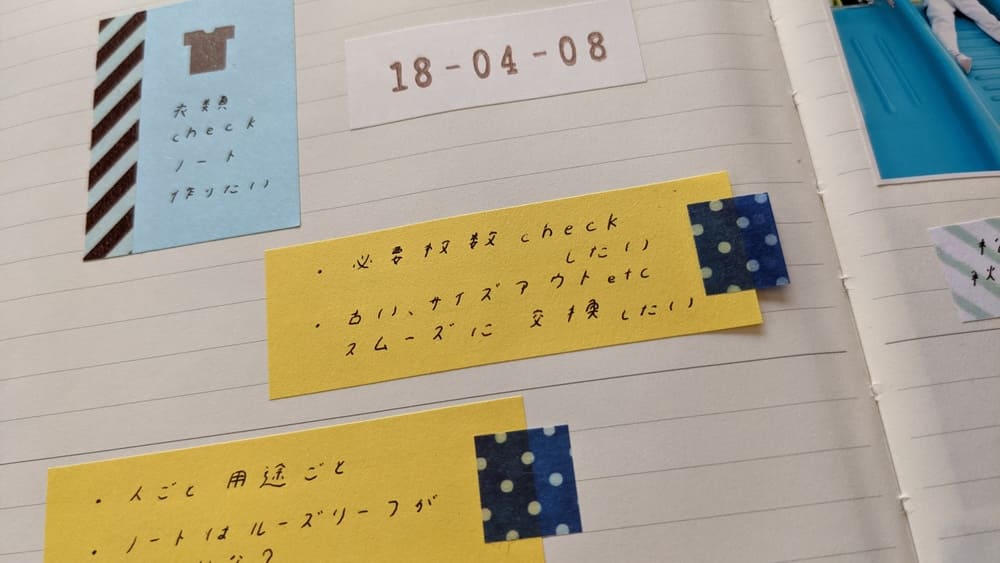 衣類
check
ノート
作りたい
18-04-08
・必要枚数check
したい
・古い、サイズアウトetc
スムーズに 交換したい
・人ごと 用途ごと
・ノートはルーズリーフが